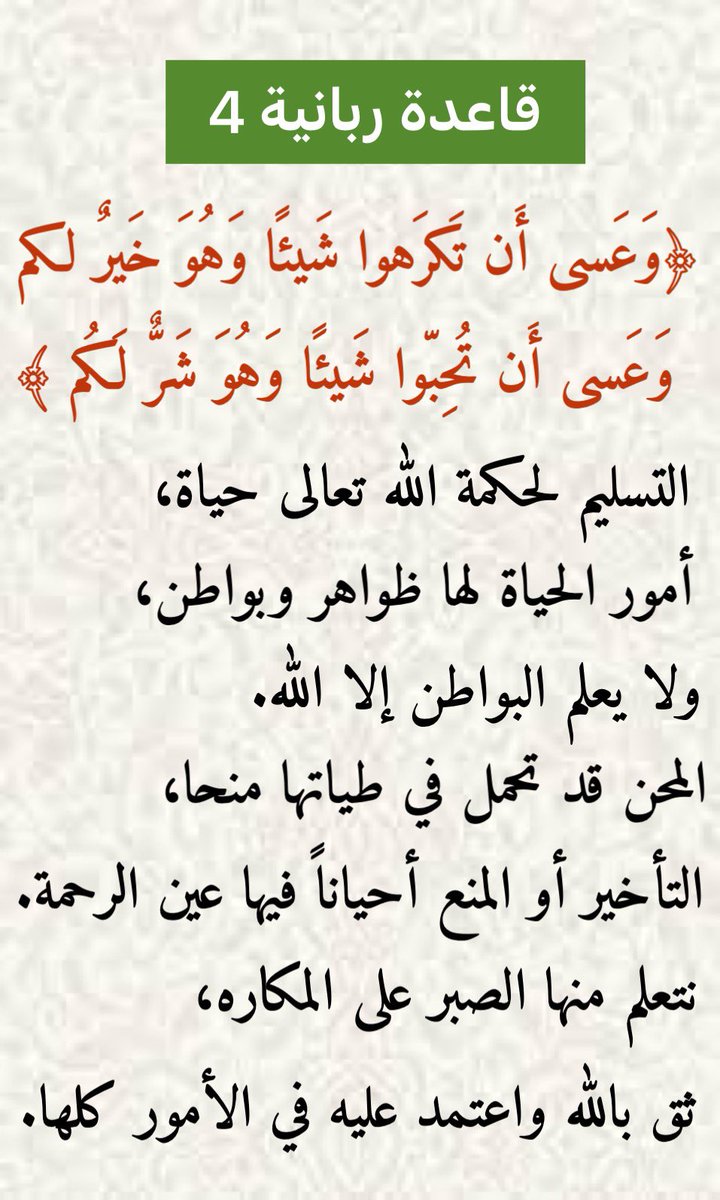 قاعدة ربانية 4
﴿وَعَسى أَن تَكرَهوا شَيئًا وَهُوَ خَيرٌ لكم
وَعَسى أَن تُحِبّوا شَيئًا وَهُوَ شَرٌّ لَكُم ﴾
التسليم لحكمة الله تعالى حياة،
أمور الحياة لها ظواهر وبواطن،
ولا يعلم البواطن إلا الله.
المحن قد تحمل في طياتها منحا،
التأخير أو المنع أحياناً فيها عين الرحمة.
نتعلم منها الصبر على المكاره،
ثق بالله واعتمد عليه في الأمور كلها.